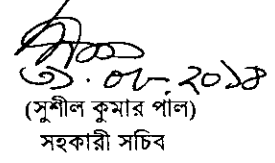 ৩১.০৮.২০১৪
(সুশীল কুমার পাল)
সহকারী সচিব